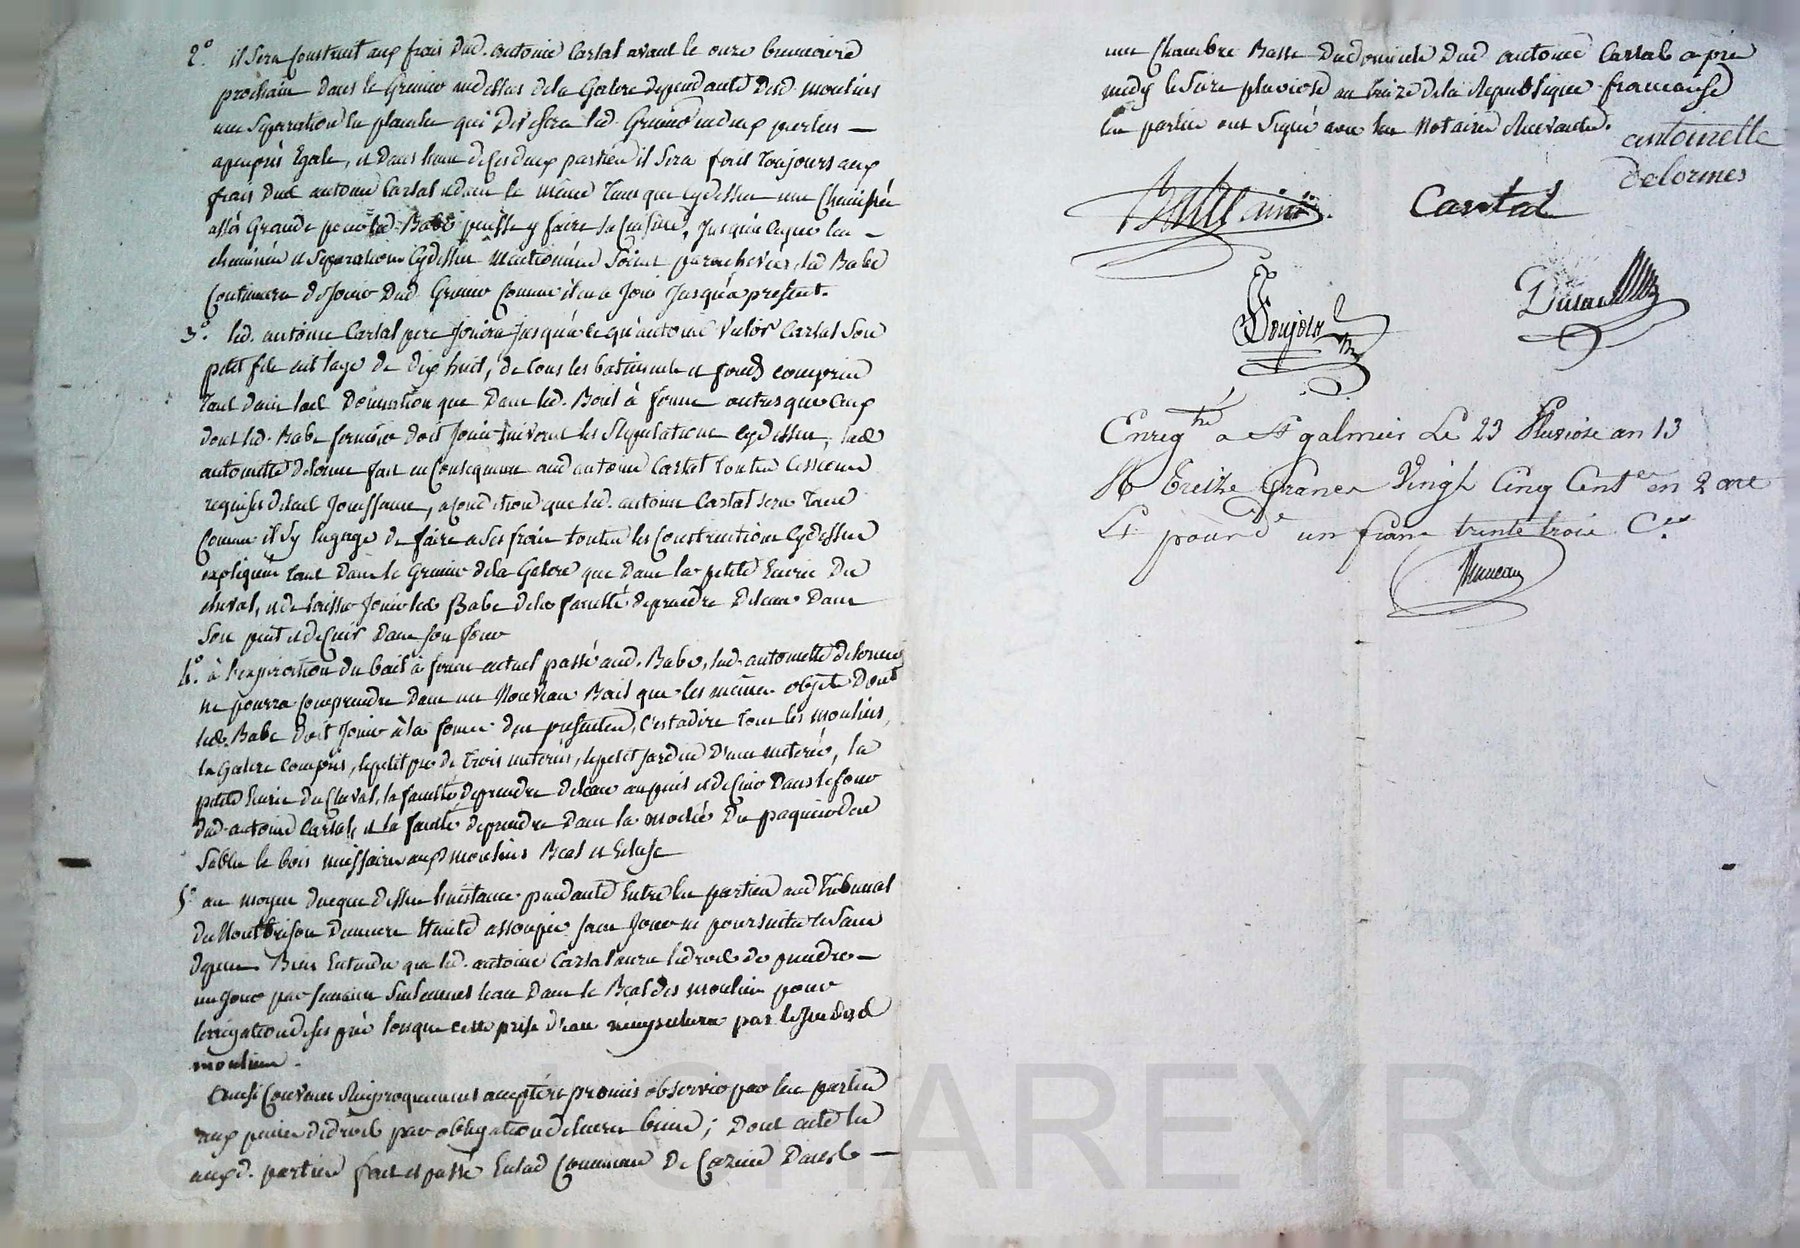 2° il Sera Construit aux frais Dud. antoine Cartal avant le onze brumaire
prochain Dans le Grenier audessus de la Galere dependante Desd. moulins
une Separation en planches qui Divisera led. Grenier en deux parties —
apeuprès Egale, et Dans l'une de Ces deux parties il Sera fait toujours aux
frais Dud antoine Cartal et dans le même tems que Cydessus une Cheminée
assés Grande pour que led. Babe puisse y faire sa Cuisine, Jusqu'a ceque les —
cheminée et Separation Cydessus Mentionnées Soient parachevées, led Babe
Continuera de Jouir Dud. Grenier Comme il en a Joui Jusqu'a present.
3° led. antoine Cartal pere Jouira Jusqu'a ce qu'antoine Cartal Son
petit fils ait l'age de dix huit, de tous les batiments et fonds compris
tant dans lad Donation que Dans led. Bail à ferme autres que Ceux
dont led. Babe fermier doit Jouir Suivant les Stipulations Cydessus, lad
antoinette Delorme fait en Consequence aud antoine Cartal toutes Cessions
requises de lad Jouissance, a Condition que led. antoine Cartal sera tenu
Comme il s'y Engage de faire a Ses frais toutes les Constructions Cydessus
expliquées tant Dans le Grenier de la Galere que Dans la petite Ecurie Du
cheval, et de laisser Jouir led Babe de la faculté de prendre De l'eau Dans
Son puit et de Cuir Dans Son four
4° à l'expiration du bail à ferme actuel passé aud. Babe, lad. antoinette Delormes
ne pourra Comprendre Dans un Nouveau Bail que les mêmes objets Dont
led. Babe Doit Jouir à la forme des presentes, C'est adire tous les moulins,
la Galere Compris, le petit pré de trois meterées, le petit Jardin D'une meterée, la
petite Ecurie du Cheval, la faculté de prendre de l'eau au puit et de Cuir Dans le four
dud. antoine Cartal, et la faculté de prendre Dans la moitié Du
Sable le bois necessaire aux moulins Beal et Ecluse
5° au moyen de ceque dessus l'instance pendante Entre les parties aud tribunal
de Montbrison Demeure Eteinte assoupie sans Jour ne poursuites et Sans
depens. Bien Entendu que led. antoine Cartal aura le droit de prendre —
un Jour par Semaine Seulement l'eau Dans le Beal des moulins pour
l'irrigation de ses près lorsque cette prise d'eau par le Jeu desd
moulins.
Ainsi Convenu Reciproquement accepté et promis observer par les parties
aux peines de droit par obligation de leurs biens; Dont acte lu
auxd. parties fait et passé En lad Commune De Cezieu Dans —
une Chambre Basse Du domicile Dud antoine Cartal apres
midy le Seize pluviose an treize de la Republique francaise
les parties ont Signé avec les Notaires Recevants.
antoinette
Delormes
Cartal
Enreg.tré a St galmier Le 23 Pluviose an 13
R Treize Francs Vingt Cinq Centes en 2 art
Et pour de un franc trente trois C.es